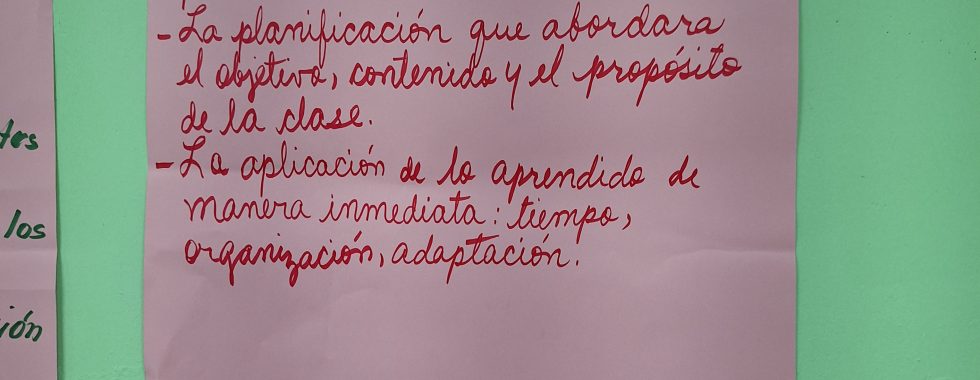 - La planificación que abordara
el objetivo, contenido y el propósito
de la clase.
- La aplicación de lo aprendido de
manera inmediata: tiempo,
organización, adaptación.
tes
los
ión